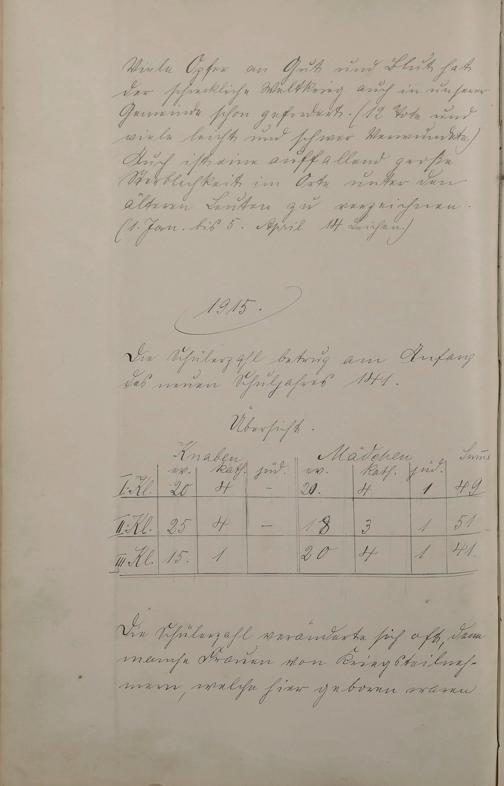 Viele Opfer an Gut und Blut hat
der schreckliche Weltkrieg auch in unserer
Gemeinde schon gefordert. (12 Tote und
viele leicht und schwer Verwundete)
Auch ist eine auffallend große
Sterblichkeit im Orte unter den
älteren Leuten zu verzeichnen.
(1. Jan. bis 5. April 14 Leichen.)
1915.
Die Schülerzahl betrug am Anfang
des neuen Schuljahres 141.
Übersicht.
Knaben Mädchen Summe
ev. kath. jüd. ev. kath. jüd.
I. Kl. 20 4 - 20. 4 1 49
II. Kl. 25 4 - 18 3 1 51
III Kl. 15. 1 20 4 1 41.
Die Schülerzahl veränderte sich oft, denn
manche Frauen von Kriegsteilneh-
mern, welche hier geboren waren